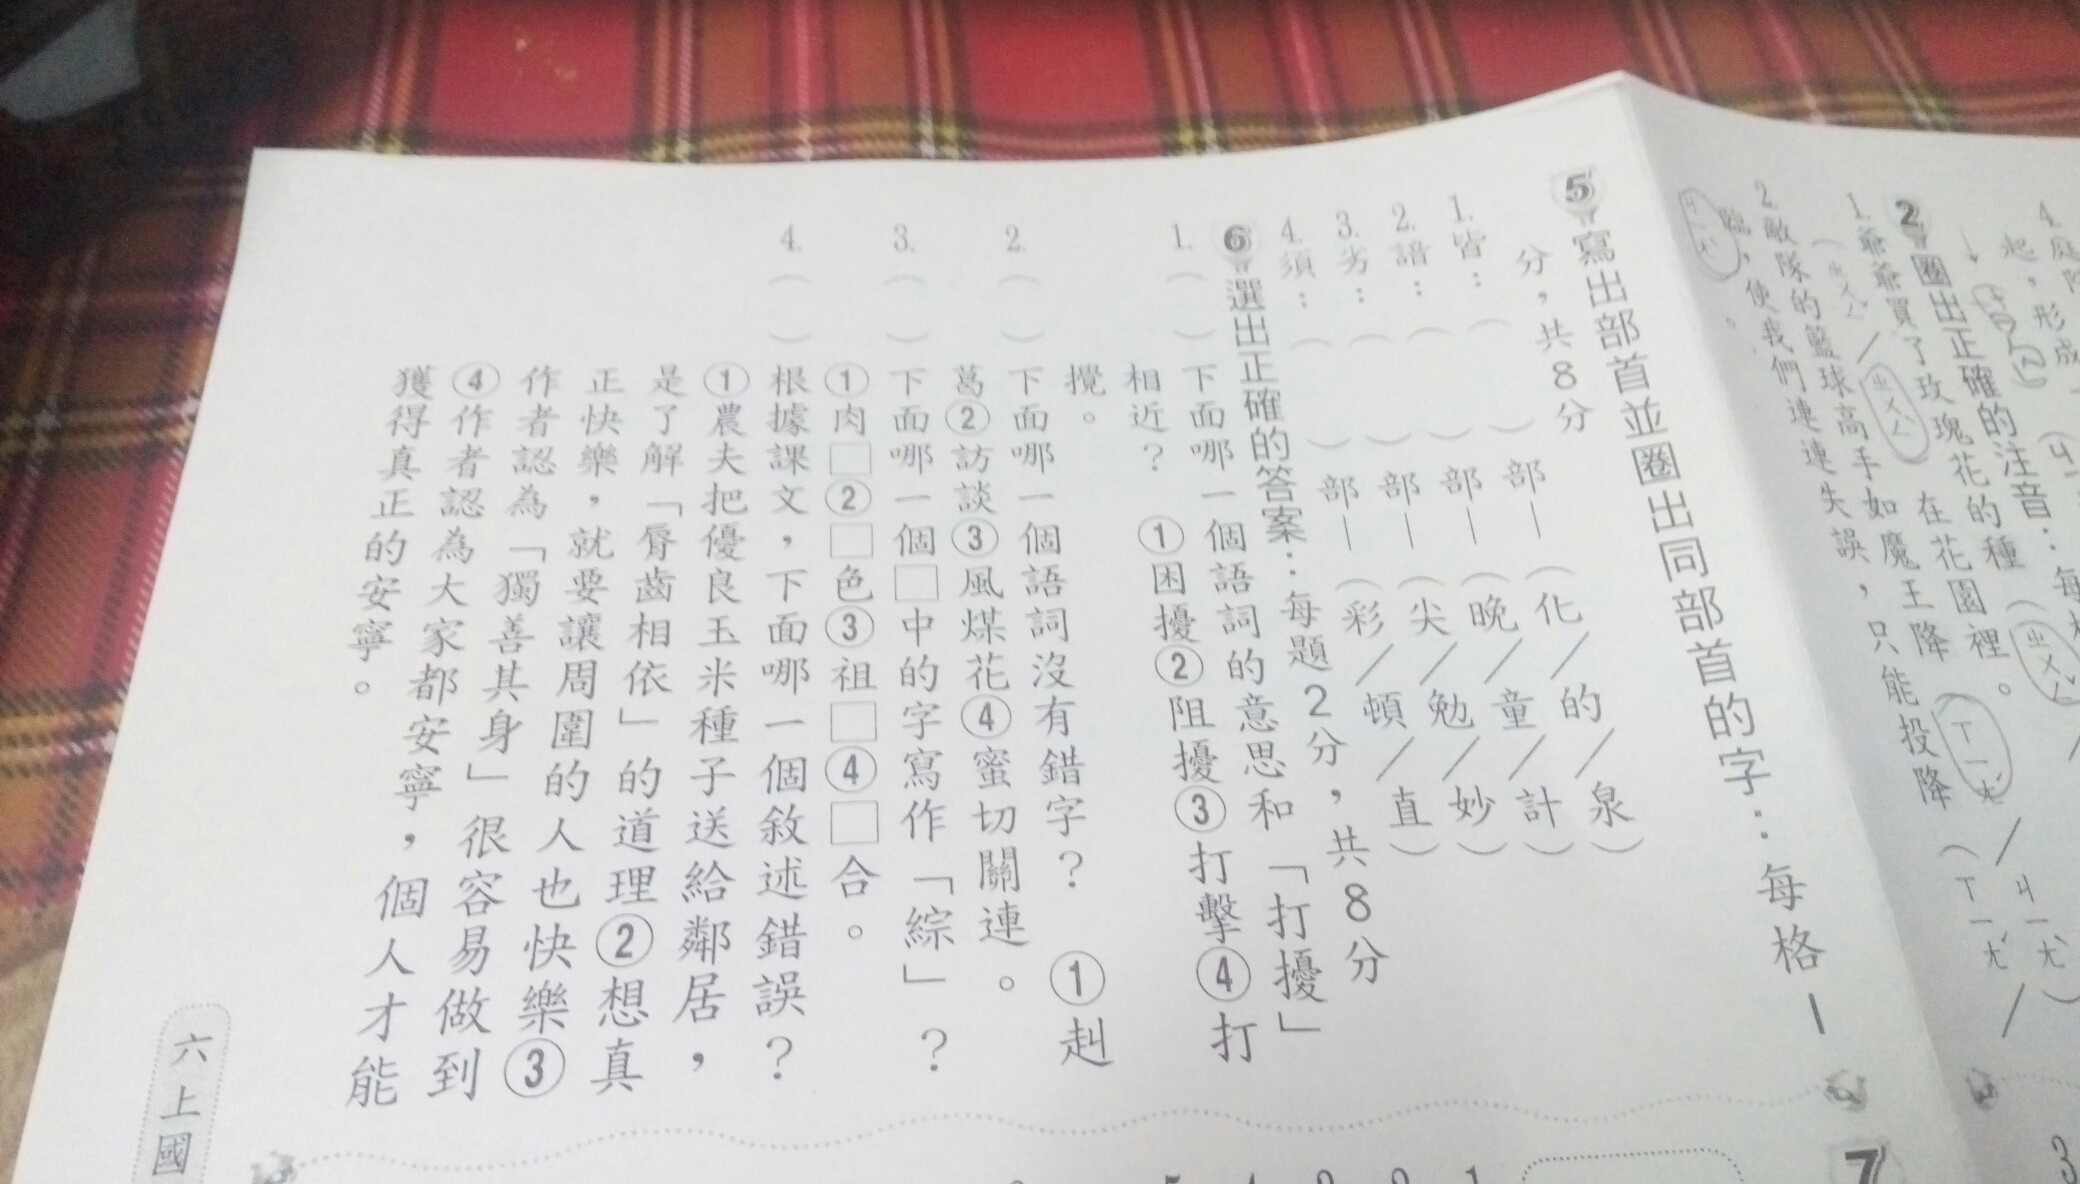 4.
起，形成
2 圈出正確的注音：每
1.爺爺買了玫瑰花的種（ㄓㄨㄥˇ
（ㄓㄨㄥˇ／ㄓㄨㄥˋ）在花園裡。
2.敵隊的籃球高手如魔王降（ㄒㄧㄤˊ／ㄐㄧㄤˋ）
臨，使我們連連失誤，只能投降（ㄒㄧㄤˊ／
ㄐㄧㄤˋ）。
5 寫出部首並圈出同部首的字：每格1
分，共8分
1.皆：（ ）部—（化／的／泉）
2.諳：（ ）部—（晚／童／計）
3.劣：（ ）部—（尖／勉／妙）
4.須：（ ）部—（彩／頓／直）
6 選出正確的答案：每題2分，共8分
1.（ ）下面哪一個語詞的意思和「打擾」
相近？ ①困擾②阻擾③打擊④打
攪。
2.（ ）下面哪一個語詞沒有錯字？ ①赳
葛②訪談③風煤花④蜜切關連。
3.（ ）下面哪一個□中的字寫作「綜」？
①肉□②□色③祖□④□合。
4.（ ）根據課文，下面哪一個敘述錯誤？
①農夫把優良玉米種子送給鄰居，
是了解「脣齒相依」的道理②想真
正快樂，就要讓周圍的人也快樂③
作者認為「獨善其身」很容易做到
④作者認為大家都安寧，個人才能
獲得真正的安寧。
六上國
7